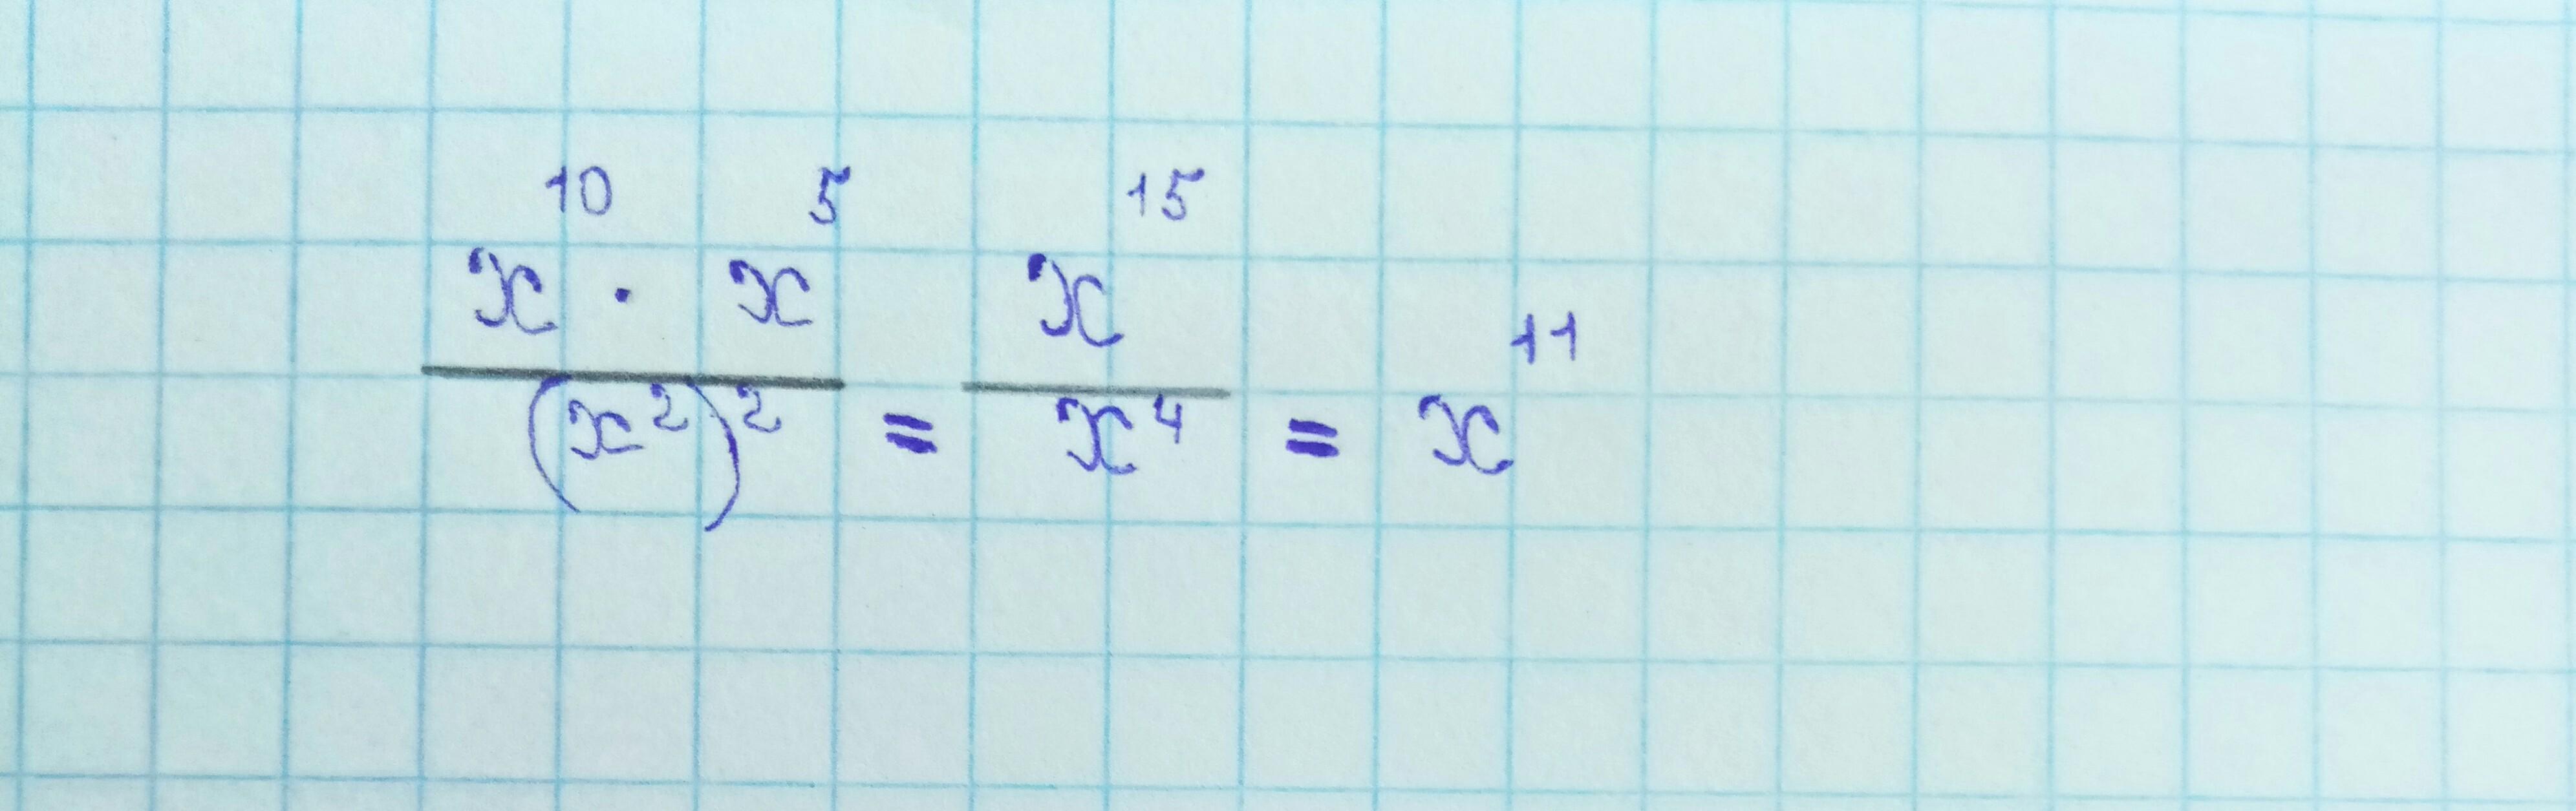 \frac{x^{10} \cdot x^{5}}{(x^{2})^{2}} = \frac{x^{15}}{x^{4}} = x^{11}